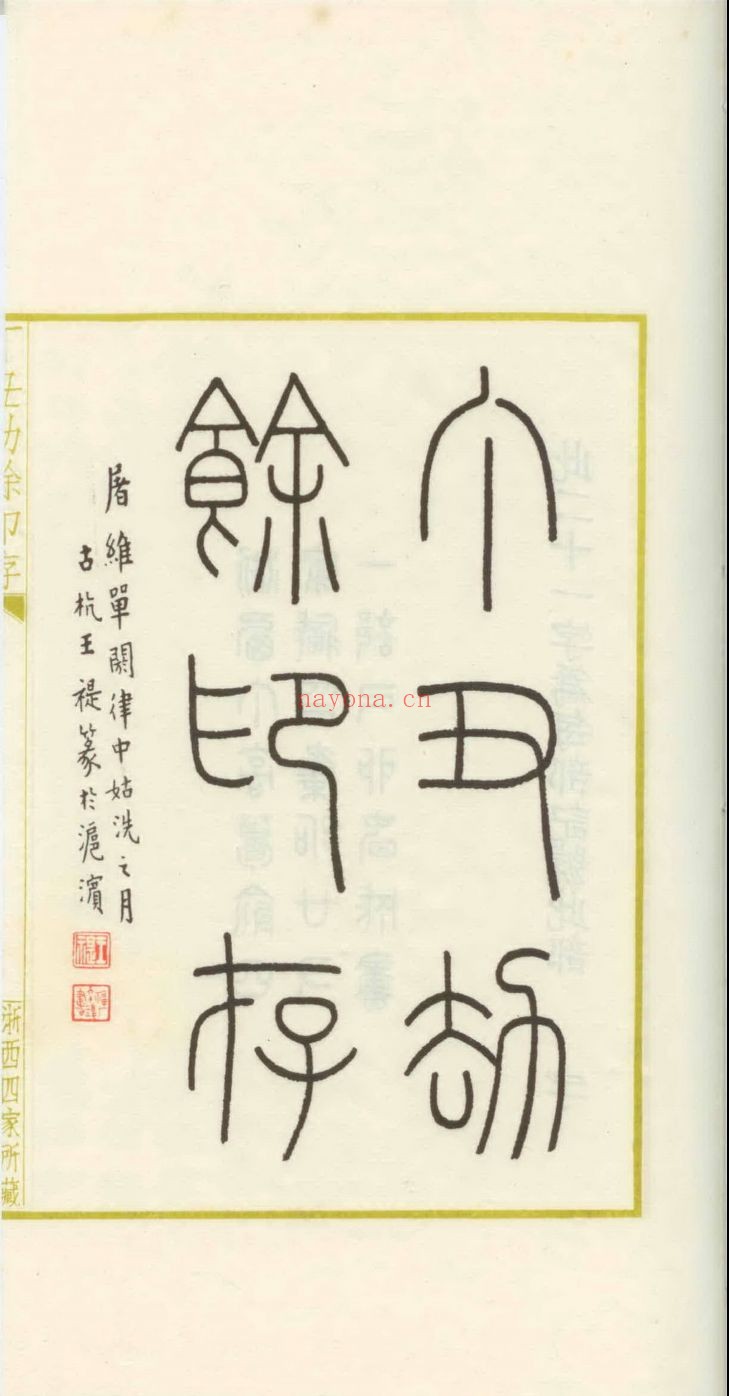 丁丑劫
餘印存
屠維單閼律中姑洗之月
古杭王禔篆於滬濱
丁丑劫余印存
浙西四家所藏
nayona.cn